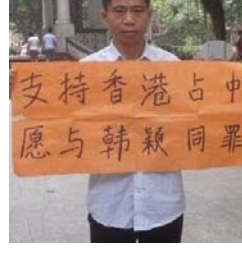 支持香港占中
愿与韩颖同罪